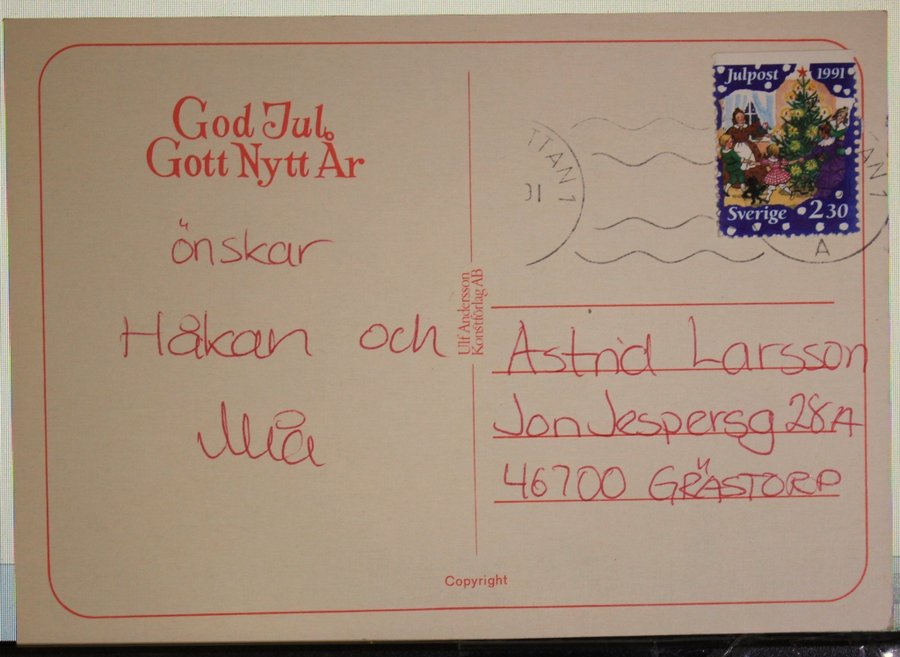 God Jul
Gott Nytt År
önskar
Håkan och
Mia
Ulf Andersson
Konstförlag AB
Julpost 1991
Sverige 2 30
TTAN 1
A
Astrid Larsson
Jon Jespersg 28A
46700 GRÄSTORP
Copyright